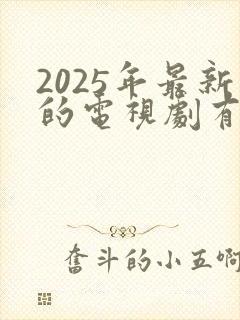 2025年最新
的電視劇有
奮斗的小五啊